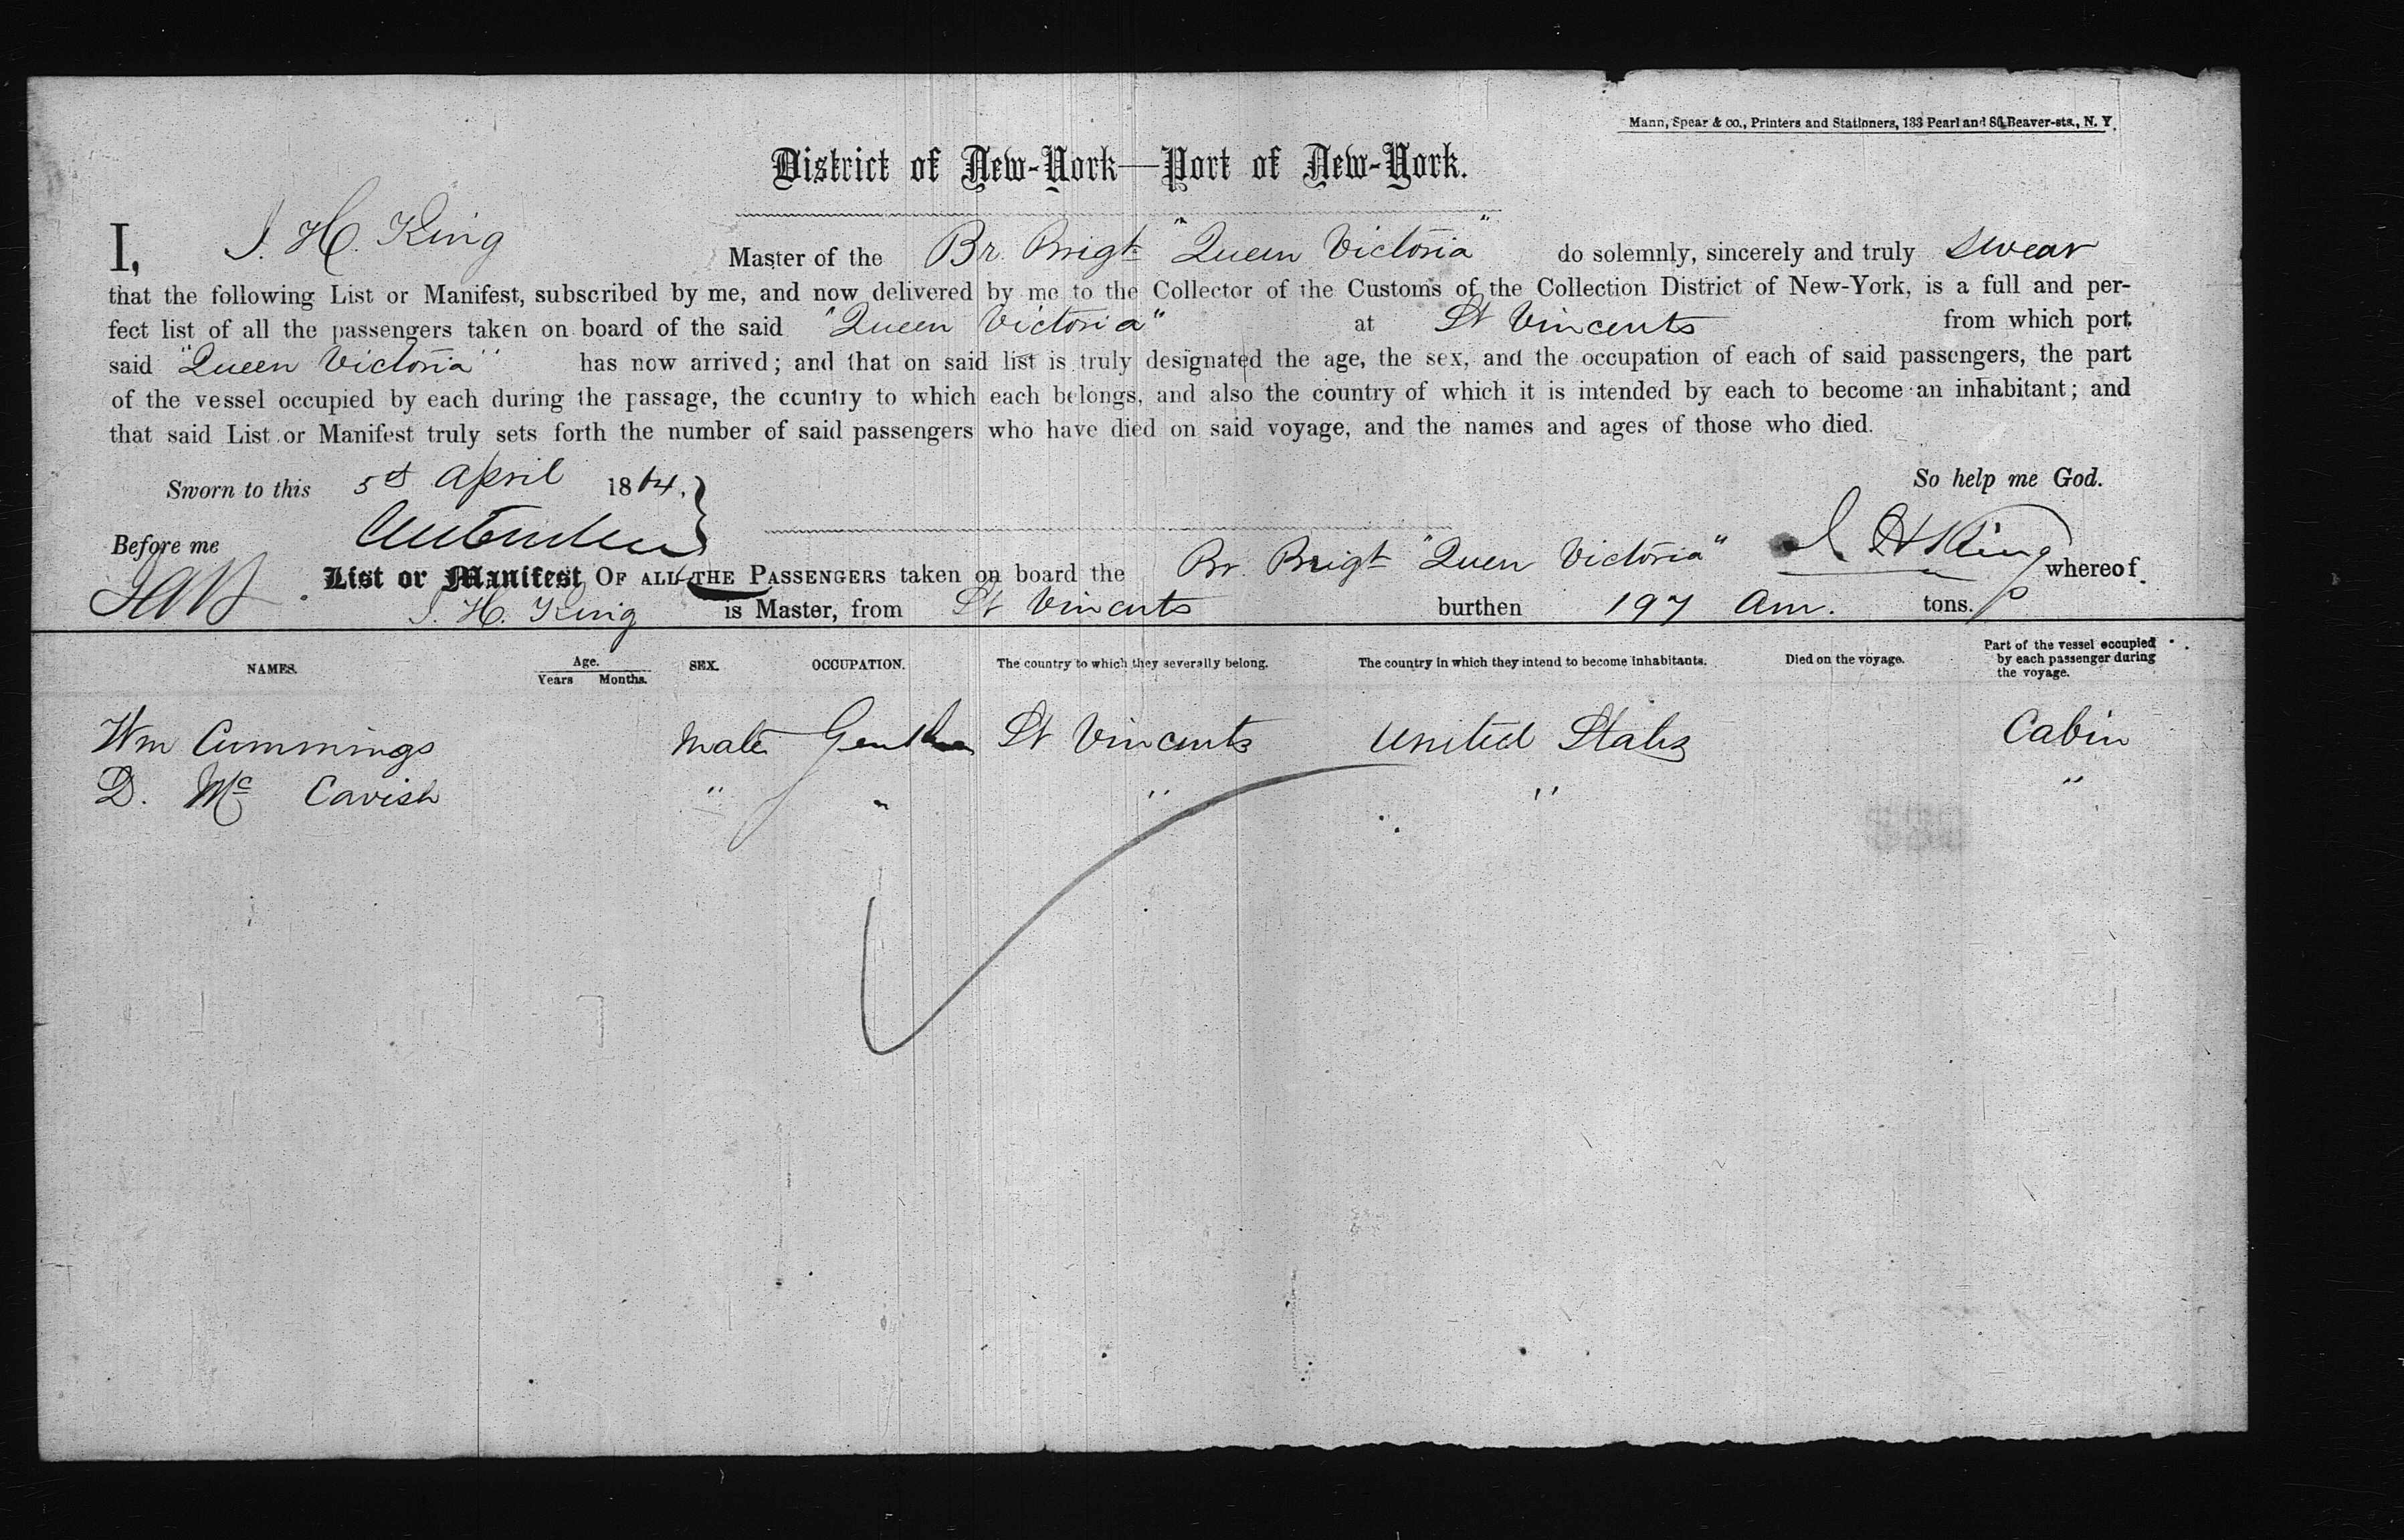 Mann, Spear & co., Printers and Stationers, 133 Pearl and 86 Beaver-sts., N. Y.
District of New-York—Port of New-York.
I, J. H. King Master of the Br. Brigt "Queen Victoria" do solemnly, sincerely and truly swear
that the following List or Manifest, subscribed by me, and now delivered by me to the Collector of the Customs of the Collection District of New-York, is a full and per-
fect list of all the passengers taken on board of the said "Queen Victoria" at St Vincents from which port
said "Queen Victoria" has now arrived; and that on said list is truly designated the age, the sex, and the occupation of each of said passengers, the part
of the vessel occupied by each during the passage, the country to which each belongs, and also the country of which it is intended by each to become an inhabitant; and
that said List or Manifest truly sets forth the number of said passengers who have died on said voyage, and the names and ages of those who died.
Sworn to this 5th April 1864. So help me God.
Before me J H King
List or Manifest OF ALL THE PASSENGERS taken on board the Br. Brigt "Queen Victoria" whereof
J. H. King is Master, from St Vincents burthen 197 Am. tons.
NAMES. Age. Years Months. SEX. OCCUPATION. The country to which they severally belong. The country in which they intend to become inhabitants. Died on the voyage. Part of the vessel occupied by each passenger during the voyage.
Wm Cummings Male St Vincents United States Cabin
D. Mc Cavish " " " " "